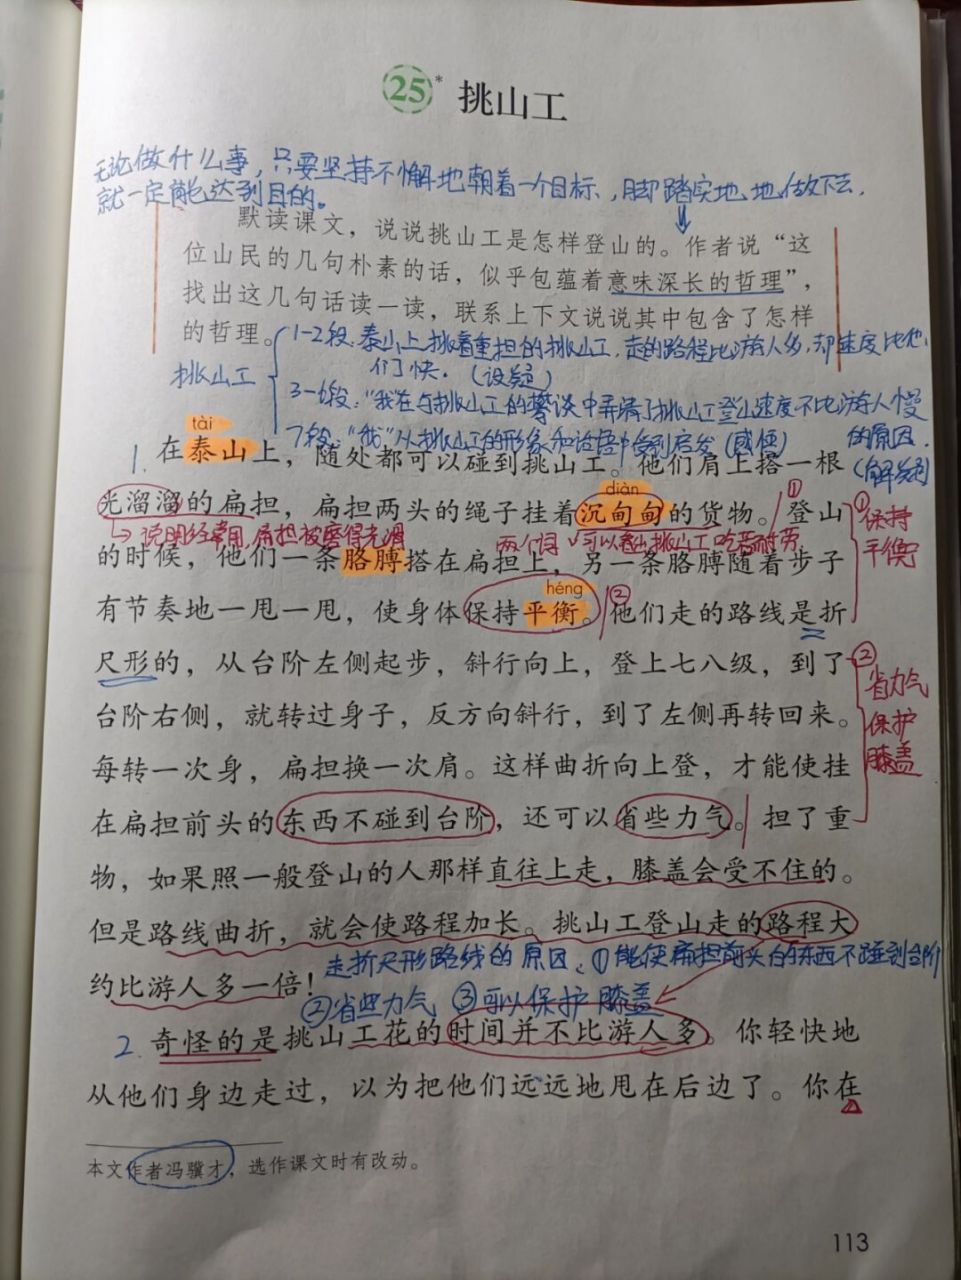 25* 挑山工
无论做什么事，只要坚持不懈地朝着一个目标，脚踏实地地做下去，
就一定能达到目的。
默读课文，说说挑山工是怎样登山的。作者说“这
位山民的几句朴素的话，似乎包蕴着意味深长的哲理”，
找出这几句话读一读，联系上下文说说其中包含了怎样
的哲理。
挑山工
1-2段：泰山上挑着重担的挑山工，走的路程比游人多，却速度比他
们快．（设疑）
3-6段："我"在与挑山工的攀谈中弄清了挑山工登山速度不比游人慢
的原因．
（解疑）
7段："我"从挑山工的形象和话语中受到启发（感悟）
tài
1．在泰山上，随处都可以碰到挑山工。他们肩上搭一根
diàn
光溜溜的扁担，扁担两头的绳子挂着沉甸甸的货物。登山
①
①保持
平衡
说明经常用，扁担被磨得光滑
两个词 可以看出挑山工吃苦耐劳
的时候，他们一条胳膊搭在扁担上，另一条胳膊随着步子
héng
有节奏地一甩一甩，使身体保持平衡。他们走的路线是折
②
尺形的，从台阶左侧起步，斜行向上，登上七八级，到了
②
省力气
保护
膝盖
台阶右侧，就转过身子，反方向斜行，到了左侧再转回来。
每转一次身，扁担换一次肩。这样曲折向上登，才能使挂
在扁担前头的东西不碰到台阶，还可以省些力气。担了重
物，如果照一般登山的人那样直往上走，膝盖会受不住的。
但是路线曲折，就会使路程加长。挑山工登山走的路程大
约比游人多一倍！
走折尺形路线的原因：①能使扁担前头的东西不碰到台阶
②省些力气 ③可以保护膝盖
2．奇怪的是挑山工花的时间并不比游人多。你轻快地
从他们身边走过，以为把他们远远地甩在后边了。你在
本文作者冯骥才，选作课文时有改动。
113